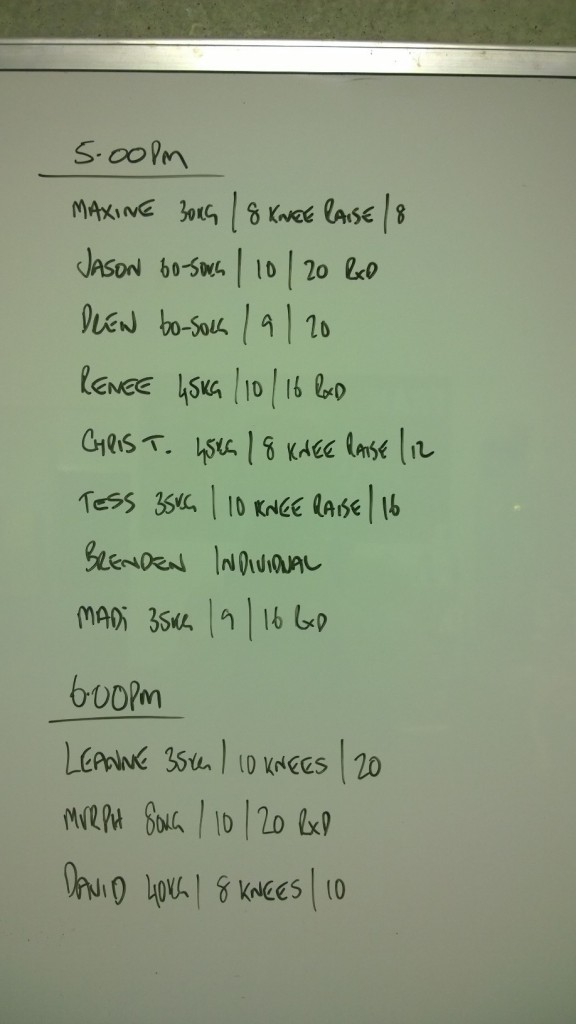 5.00PM
MAXINE 30KG | 8 KNEE RAISE | 8
JASON 60-50KG | 10 | 20 RxD
DREN 60-50KG | 9 | 20
RENEE 45KG | 10 | 16 RxD
CHRIS T. 45KG | 8 KNEE RAISE | 12
TESS 35KG | 10 KNEE RAISE | 16
BRENDEN INDIVIDUAL
MADi 35KG | 9 | 16 RxD
6.00PM
LEANNE 35KG | 10 KNEES | 20
MURPH 80KG | 10 | 20 RxD
DAVID 40KG | 8 KNEES | 10